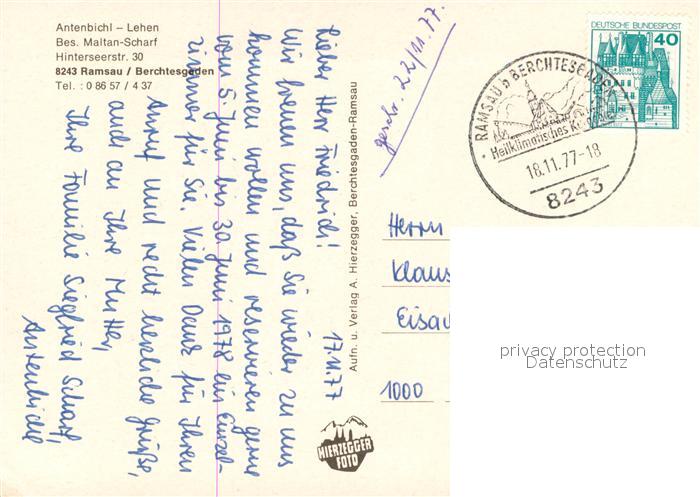 Antenbichl – Lehen
Bes. Maltan-Scharf
Hinterseerstr. 30
8243 Ramsau / Berchtesgaden
Tel. : 0 86 57 / 4 37
17.11.77
Lieber Herr Friedrich!
Wir freuen uns, daß Sie wieder zu uns
kommen wollen und reservieren gerne
vom 5. Juni bis 30. Juni 1978 ein Einzel-
zimmer für Sie. Vielen Dank für Ihren
Anruf und recht herzliche Grüße,
auch an Ihre Mutter,
Ihre Familie Siegfried Scharf,
Antenbichl
geschr. 22/11.77.
Aufn. u. Verlag A. Hierzegger, Berchtesgaden-Ramsau
HIERZEGGER
FOTO
DEUTSCHE BUNDESPOST
40
RAMSAU b BERCHTESGADEN
Heilklimatisches
18.11.77-18
8243
Herrn
Klaus
Eisa
1000
privacy protection
Datenschutz